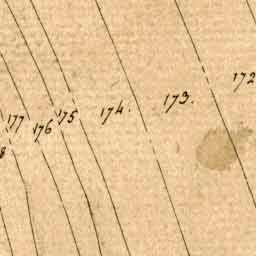 172
173.
174.
175
176
177
8